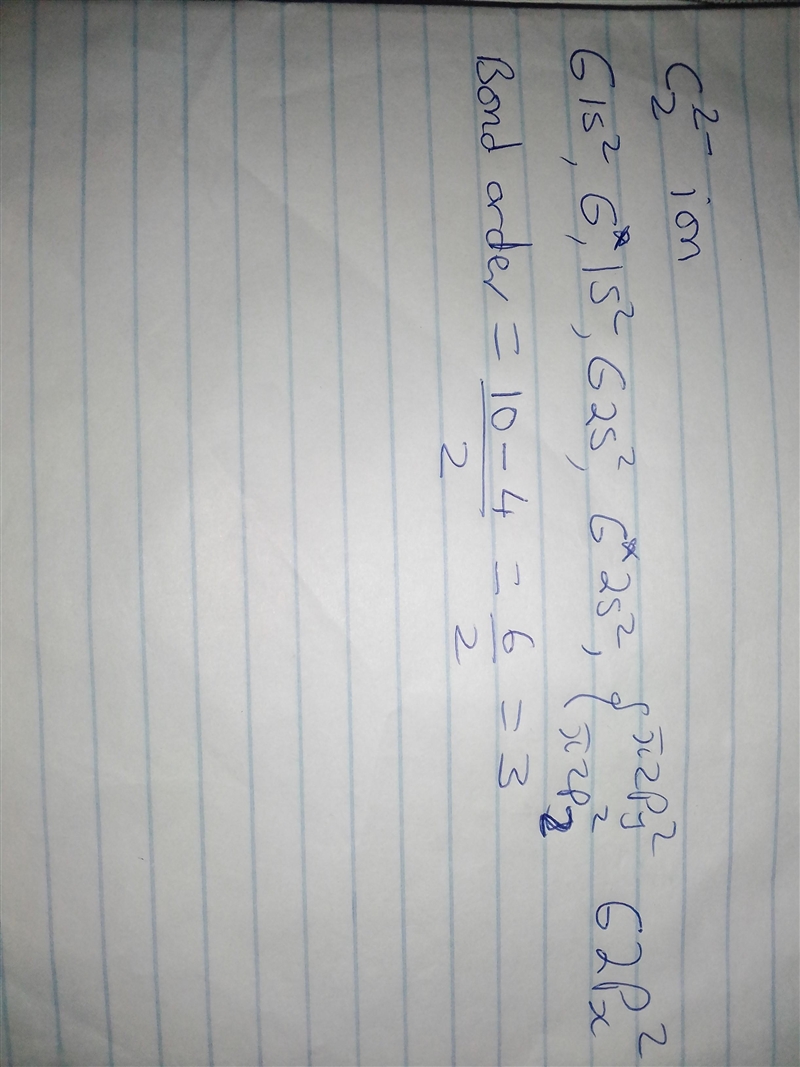 C₂²⁻ ion
б1s², б*, 1s², б2s², б*2s², { π2Py² π2Pz² б2Px²
Bond order = 10-4/2 = 6/2 = 3